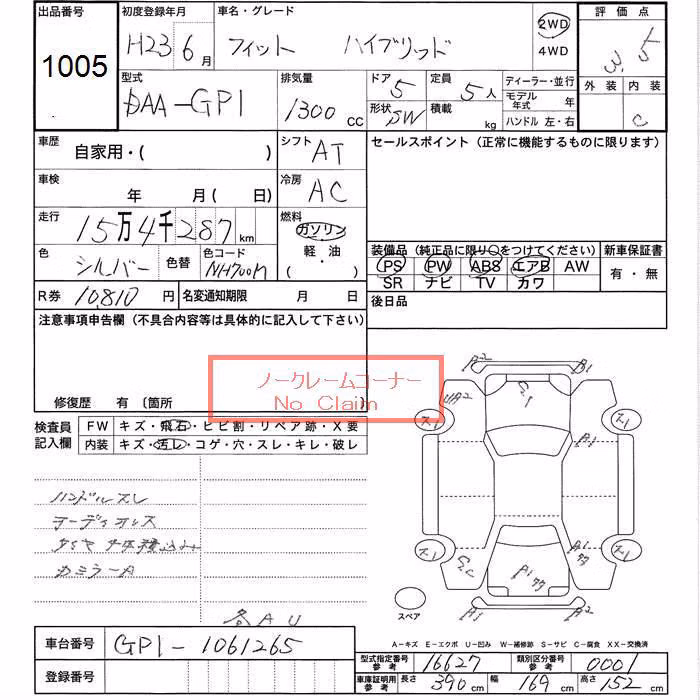 出品番号 初度登録年月 車名・グレード 評価点
1005 H23 6月 フィット ハイブリッド 2WD 3.5
4WD
型式 排気量 ドア 定員 ディーラー・並行 外装 内装
DAA-GP1 1300 CC 5 5人 モデル年式 年 C
形状 SW 積載 kg ハンドル 左・右
車歴 自家用・( ) シフト AT セールスポイント (正常に機能するものに限ります)
車検 年 月(日) 冷房 AC
走行 15万4千287km 燃料 ガソリン
軽・油
( )
色 シルバー 色替 色コード NH700M 装備品(純正品に限り○をつけてください) 新車保証書
PS PW ABS エアB AW 有・無
SR ナビ TV カワ
R券 10,810円 名変通知期限 月 日 後日品
注意事項申告欄(不具合内容等は具体的に記入して下さい)
ノークレームコーナー
No Claim
修復歴 有 〔箇所 〕
検査員記入欄 FW キズ・飛石・ヒビ割・リペア跡・X要
内装 キズ・汚レ・コゲ・穴・スレ・キレ・破レ
ハンドルスレ
オーディオレス
タイヤ 4本積込み
カミラーA
各AU
A2 B1
UA2 G1
ス1 ス1
A1
ス1 ス1
A1 ワワ
A1 ワワ
A1 A2
スペア
A-キズ E-エクボ U-凹み W-補修跡 S-サビ C-腐食 XX-交換済
車台番号 GP1-1061265
登録番号
型式指定番号参考 16627 類別区分番号参考 0001
車庫証明用参考 長さ 390cm 幅 169cm 高さ 152cm